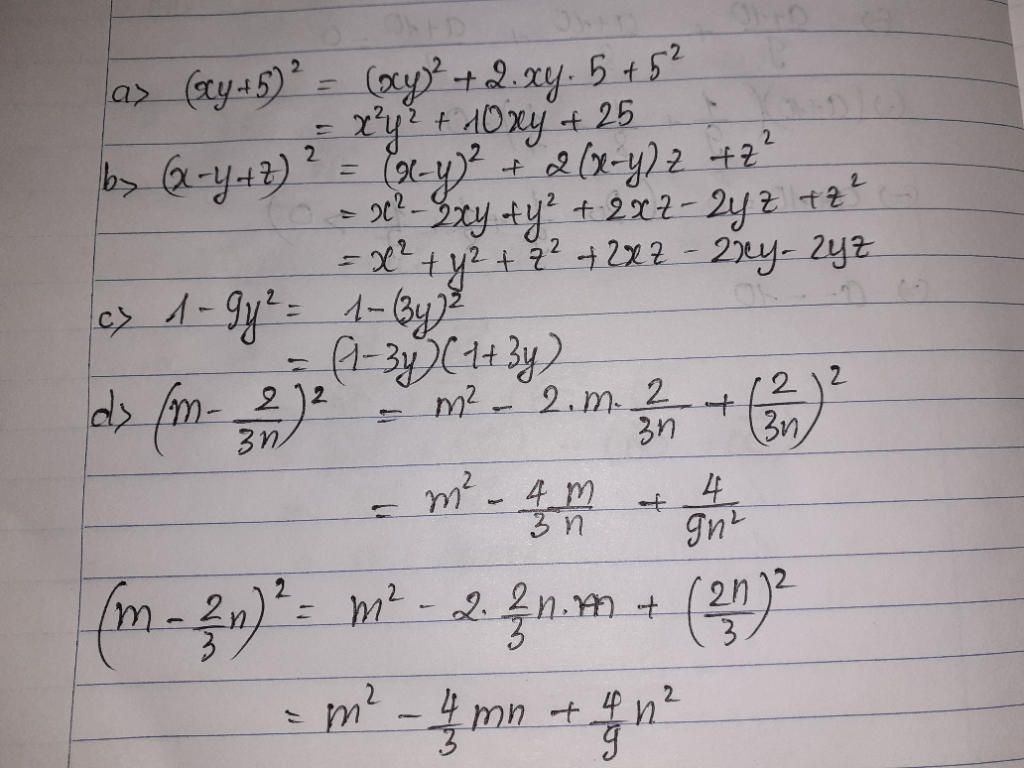 a> (xy+5)² = (xy)² + 2.xy.5 + 5²
= x²y² + 10xy + 25
b> (x-y+z)² = (x-y)² + 2(x-y)z + z²
= x² - 2xy + y² + 2xz - 2yz + z²
= x² + y² + z² + 2xz - 2xy - 2yz
c> 1 - 9y² = 1 - (3y)²
= (1-3y)(1+3y)
d> (m - 2/3n)² = m² - 2.m.2/3n + (2/3n)²
= m² - 4m/3n + 4/9n²
(m - 2/3 n)² = m² - 2.2/3 n.m + (2n/3)²
= m² - 4/3 mn + 4/9 n²